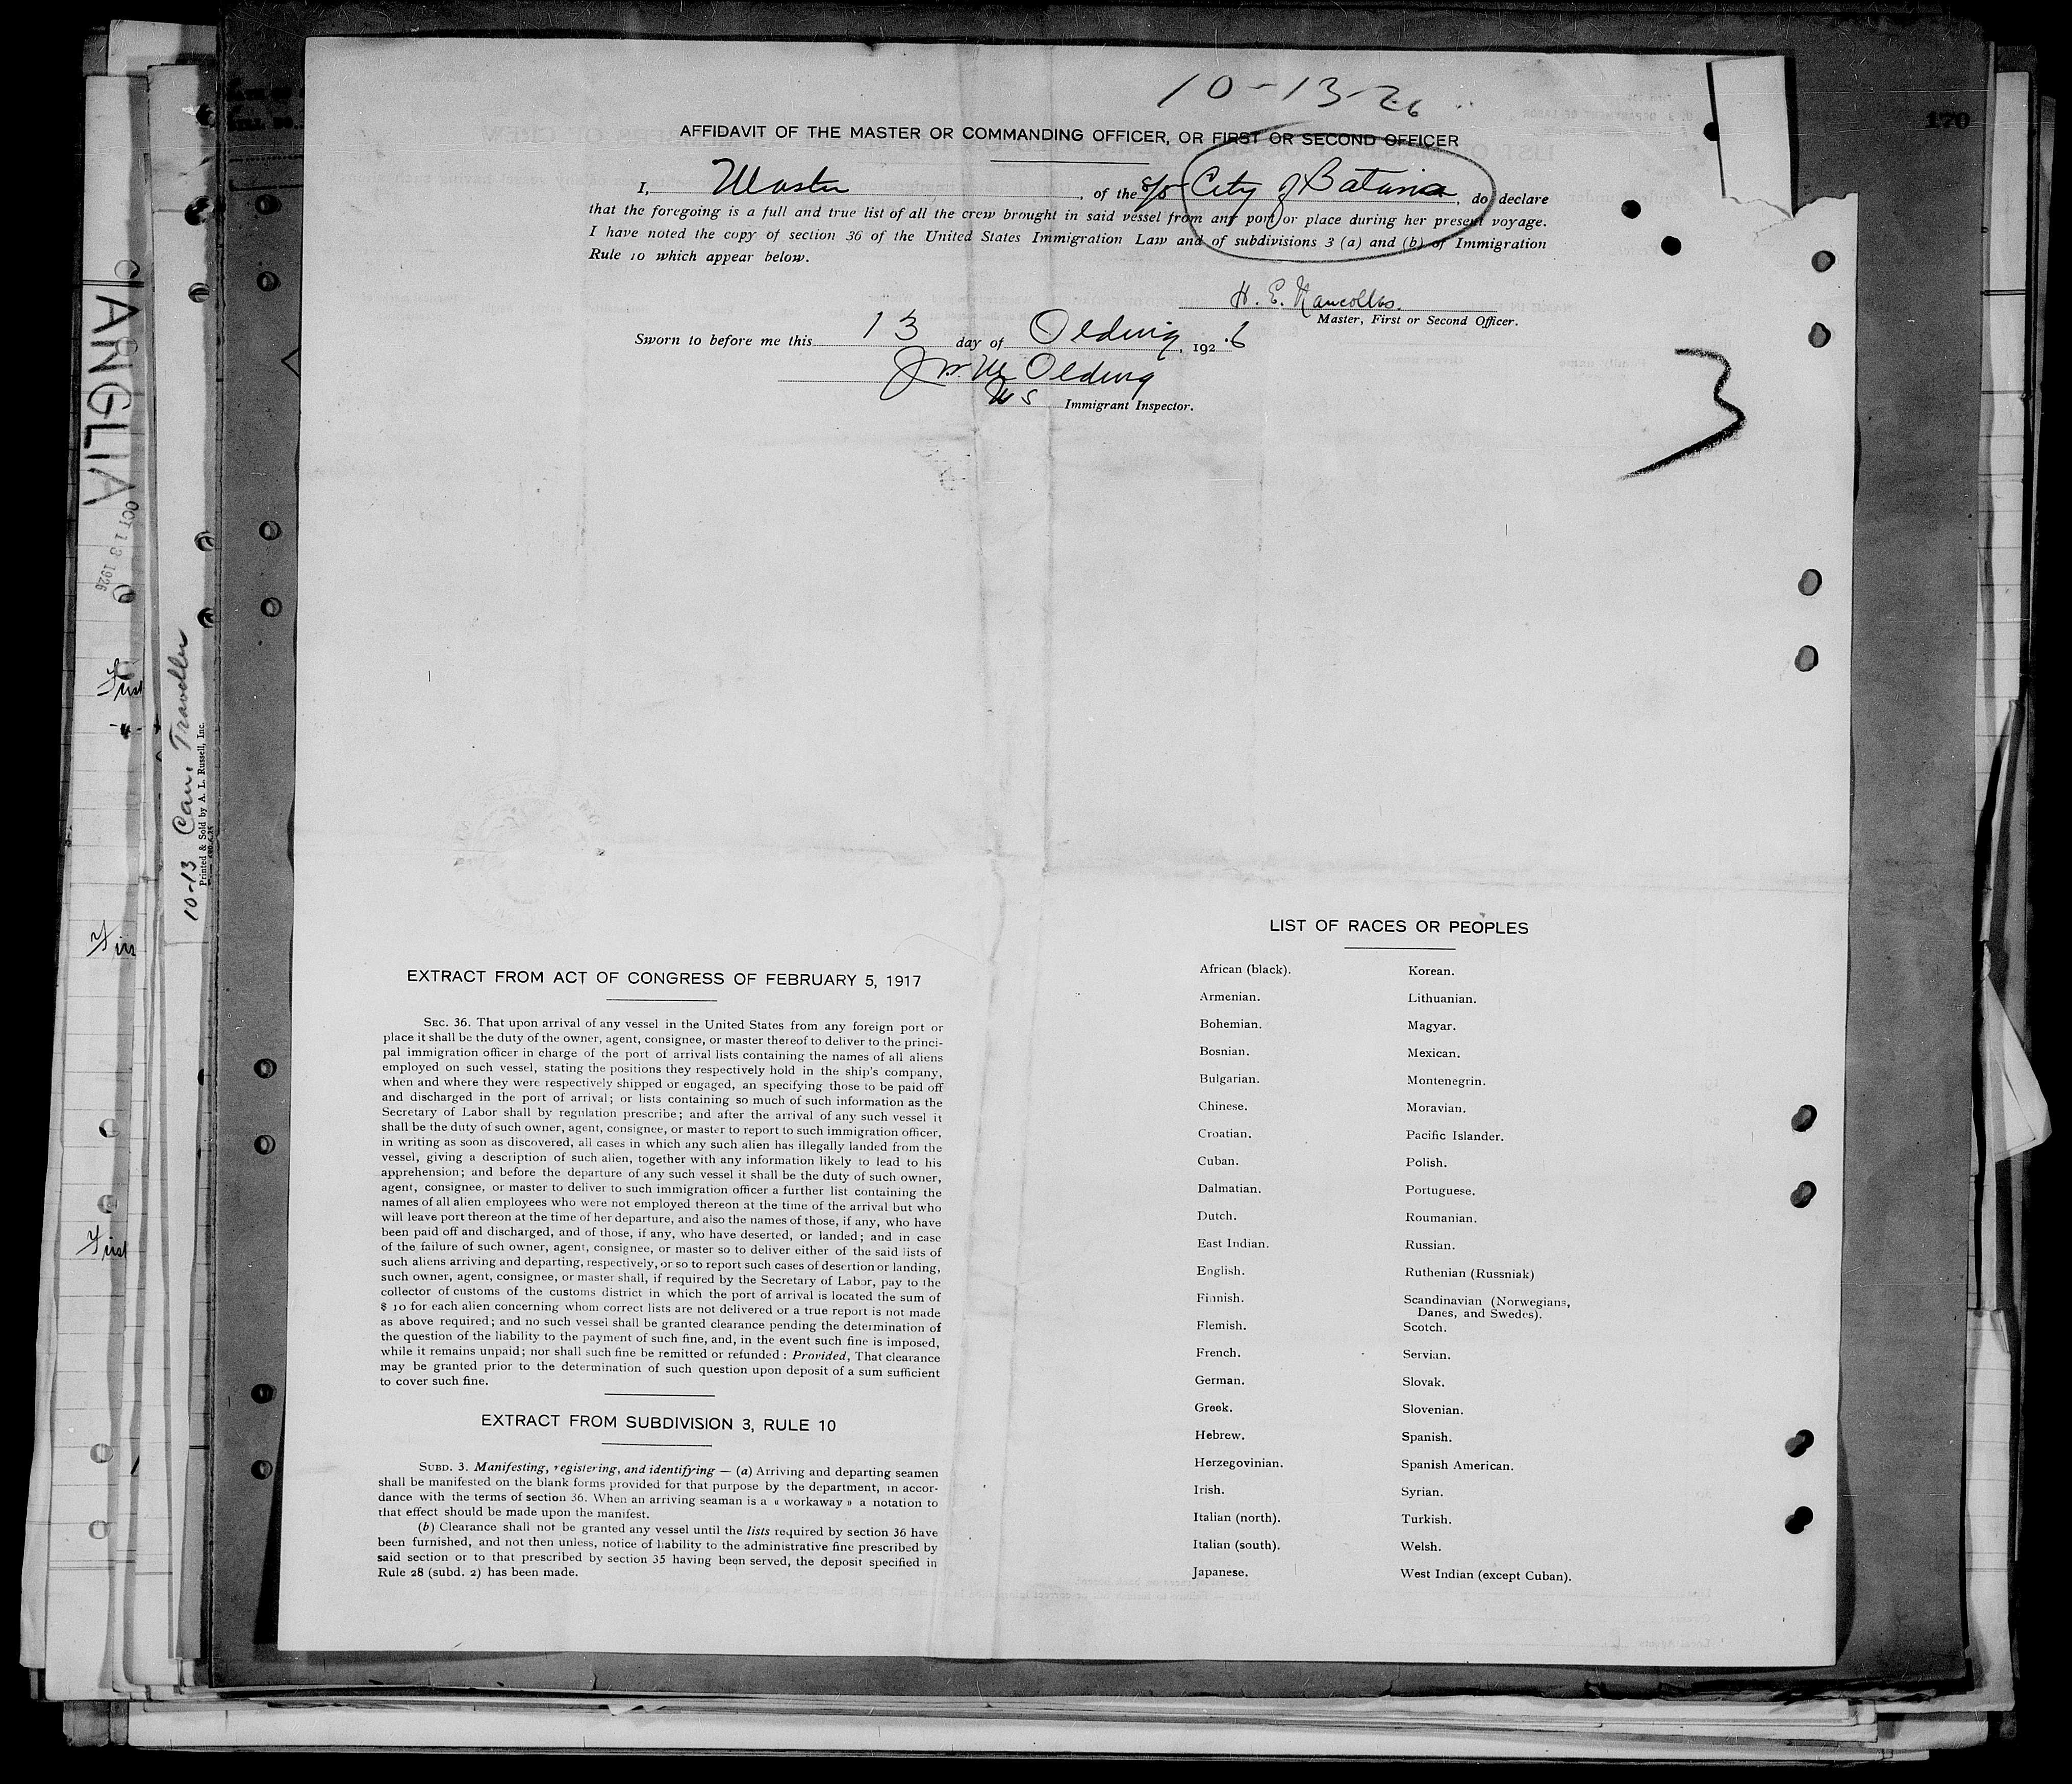 10-13-26
170
AFFIDAVIT OF THE MASTER OR COMMANDING OFFICER, OR FIRST OR SECOND OFFICER
I, Master, of the s/s City of Batavia, do declare
that the foregoing is a full and true list of all the crew brought in said vessel from any port or place during her present voyage.
I have noted the copy of section 36 of the United States Immigration Law and of subdivisions 3 (a) and (b) of Immigration
Rule 10 which appear below.
H. E. Nancollas.
Master, First or Second Officer.
Sworn to before me this 13 day of Olding, 192.6
Jw. M Olding
US Immigrant Inspector.
3
ANGLIA
OCT 13 1926
First
Firs
First
10-13 Can. Traveller
Printed & Sold by A. L. Russell, Inc.
EXTRACT FROM ACT OF CONGRESS OF FEBRUARY 5, 1917
SEC. 36. That upon arrival of any vessel in the United States from any foreign port or
place it shall be the duty of the owner, agent, consignee, or master thereof to deliver to the princi-
pal immigration officer in charge of the port of arrival lists containing the names of all aliens
employed on such vessel, stating the positions they respectively hold in the ship's company,
when and where they were respectively shipped or engaged, an specifying those to be paid off
and discharged in the port of arrival; or lists containing so much of such information as the
Secretary of Labor shall by regulation prescribe; and after the arrival of any such vessel it
shall be the duty of such owner, agent, consignee, or master to report to such immigration officer,
in writing as soon as discovered, all cases in which any such alien has illegally landed from the
vessel, giving a description of such alien, together with any information likely to lead to his
apprehension; and before the departure of any such vessel it shall be the duty of such owner,
agent, consignee, or master to deliver to such immigration officer a further list containing the
names of all alien employees who were not employed thereon at the time of the arrival but who
will leave port thereon at the time of her departure, and also the names of those, if any, who have
been paid off and discharged, and of those, if any, who have deserted, or landed; and in case
of the failure of such owner, agent, consignee, or master so to deliver either of the said lists of
such aliens arriving and departing, respectively, or so to report such cases of desertion or landing,
such owner, agent, consignee, or master shall, if required by the Secretary of Labor, pay to the
collector of customs of the customs district in which the port of arrival is located the sum of
$ 10 for each alien concerning whom correct lists are not delivered or a true report is not made
as above required; and no such vessel shall be granted clearance pending the determination of
the question of the liability to the payment of such fine, and, in the event such fine is imposed,
while it remains unpaid; nor shall such fine be remitted or refunded : Provided, That clearance
may be granted prior to the determination of such question upon deposit of a sum sufficient
to cover such fine.
EXTRACT FROM SUBDIVISION 3, RULE 10
SUBD. 3. Manifesting, registering, and identifying — (a) Arriving and departing seamen
shall be manifested on the blank forms provided for that purpose by the department, in accor-
dance with the terms of section 36. When an arriving seaman is a « workaway » a notation to
that effect should be made upon the manifest.
(b) Clearance shall not be granted any vessel until the lists required by section 36 have
been furnished, and not then unless, notice of liability to the administrative fine prescribed by
said section or to that prescribed by section 35 having been served, the deposit specified in
Rule 28 (subd. 2) has been made.
LIST OF RACES OR PEOPLES
African (black).
Armenian.
Bohemian.
Bosnian.
Bulgarian.
Chinese.
Croatian.
Cuban.
Dalmatian.
Dutch.
East Indian.
English.
Finnish.
Flemish.
French.
German.
Greek.
Hebrew.
Herzegovinian.
Irish.
Italian (north).
Italian (south).
Japanese.
Korean.
Lithuanian.
Magyar.
Mexican.
Montenegrin.
Moravian.
Pacific Islander.
Polish.
Portuguese.
Roumanian.
Russian.
Ruthenian (Russniak)
Scandinavian (Norwegians,
Danes, and Swedes).
Scotch.
Servian.
Slovak.
Slovenian.
Spanish.
Spanish American.
Syrian.
Turkish.
Welsh.
West Indian (except Cuban).